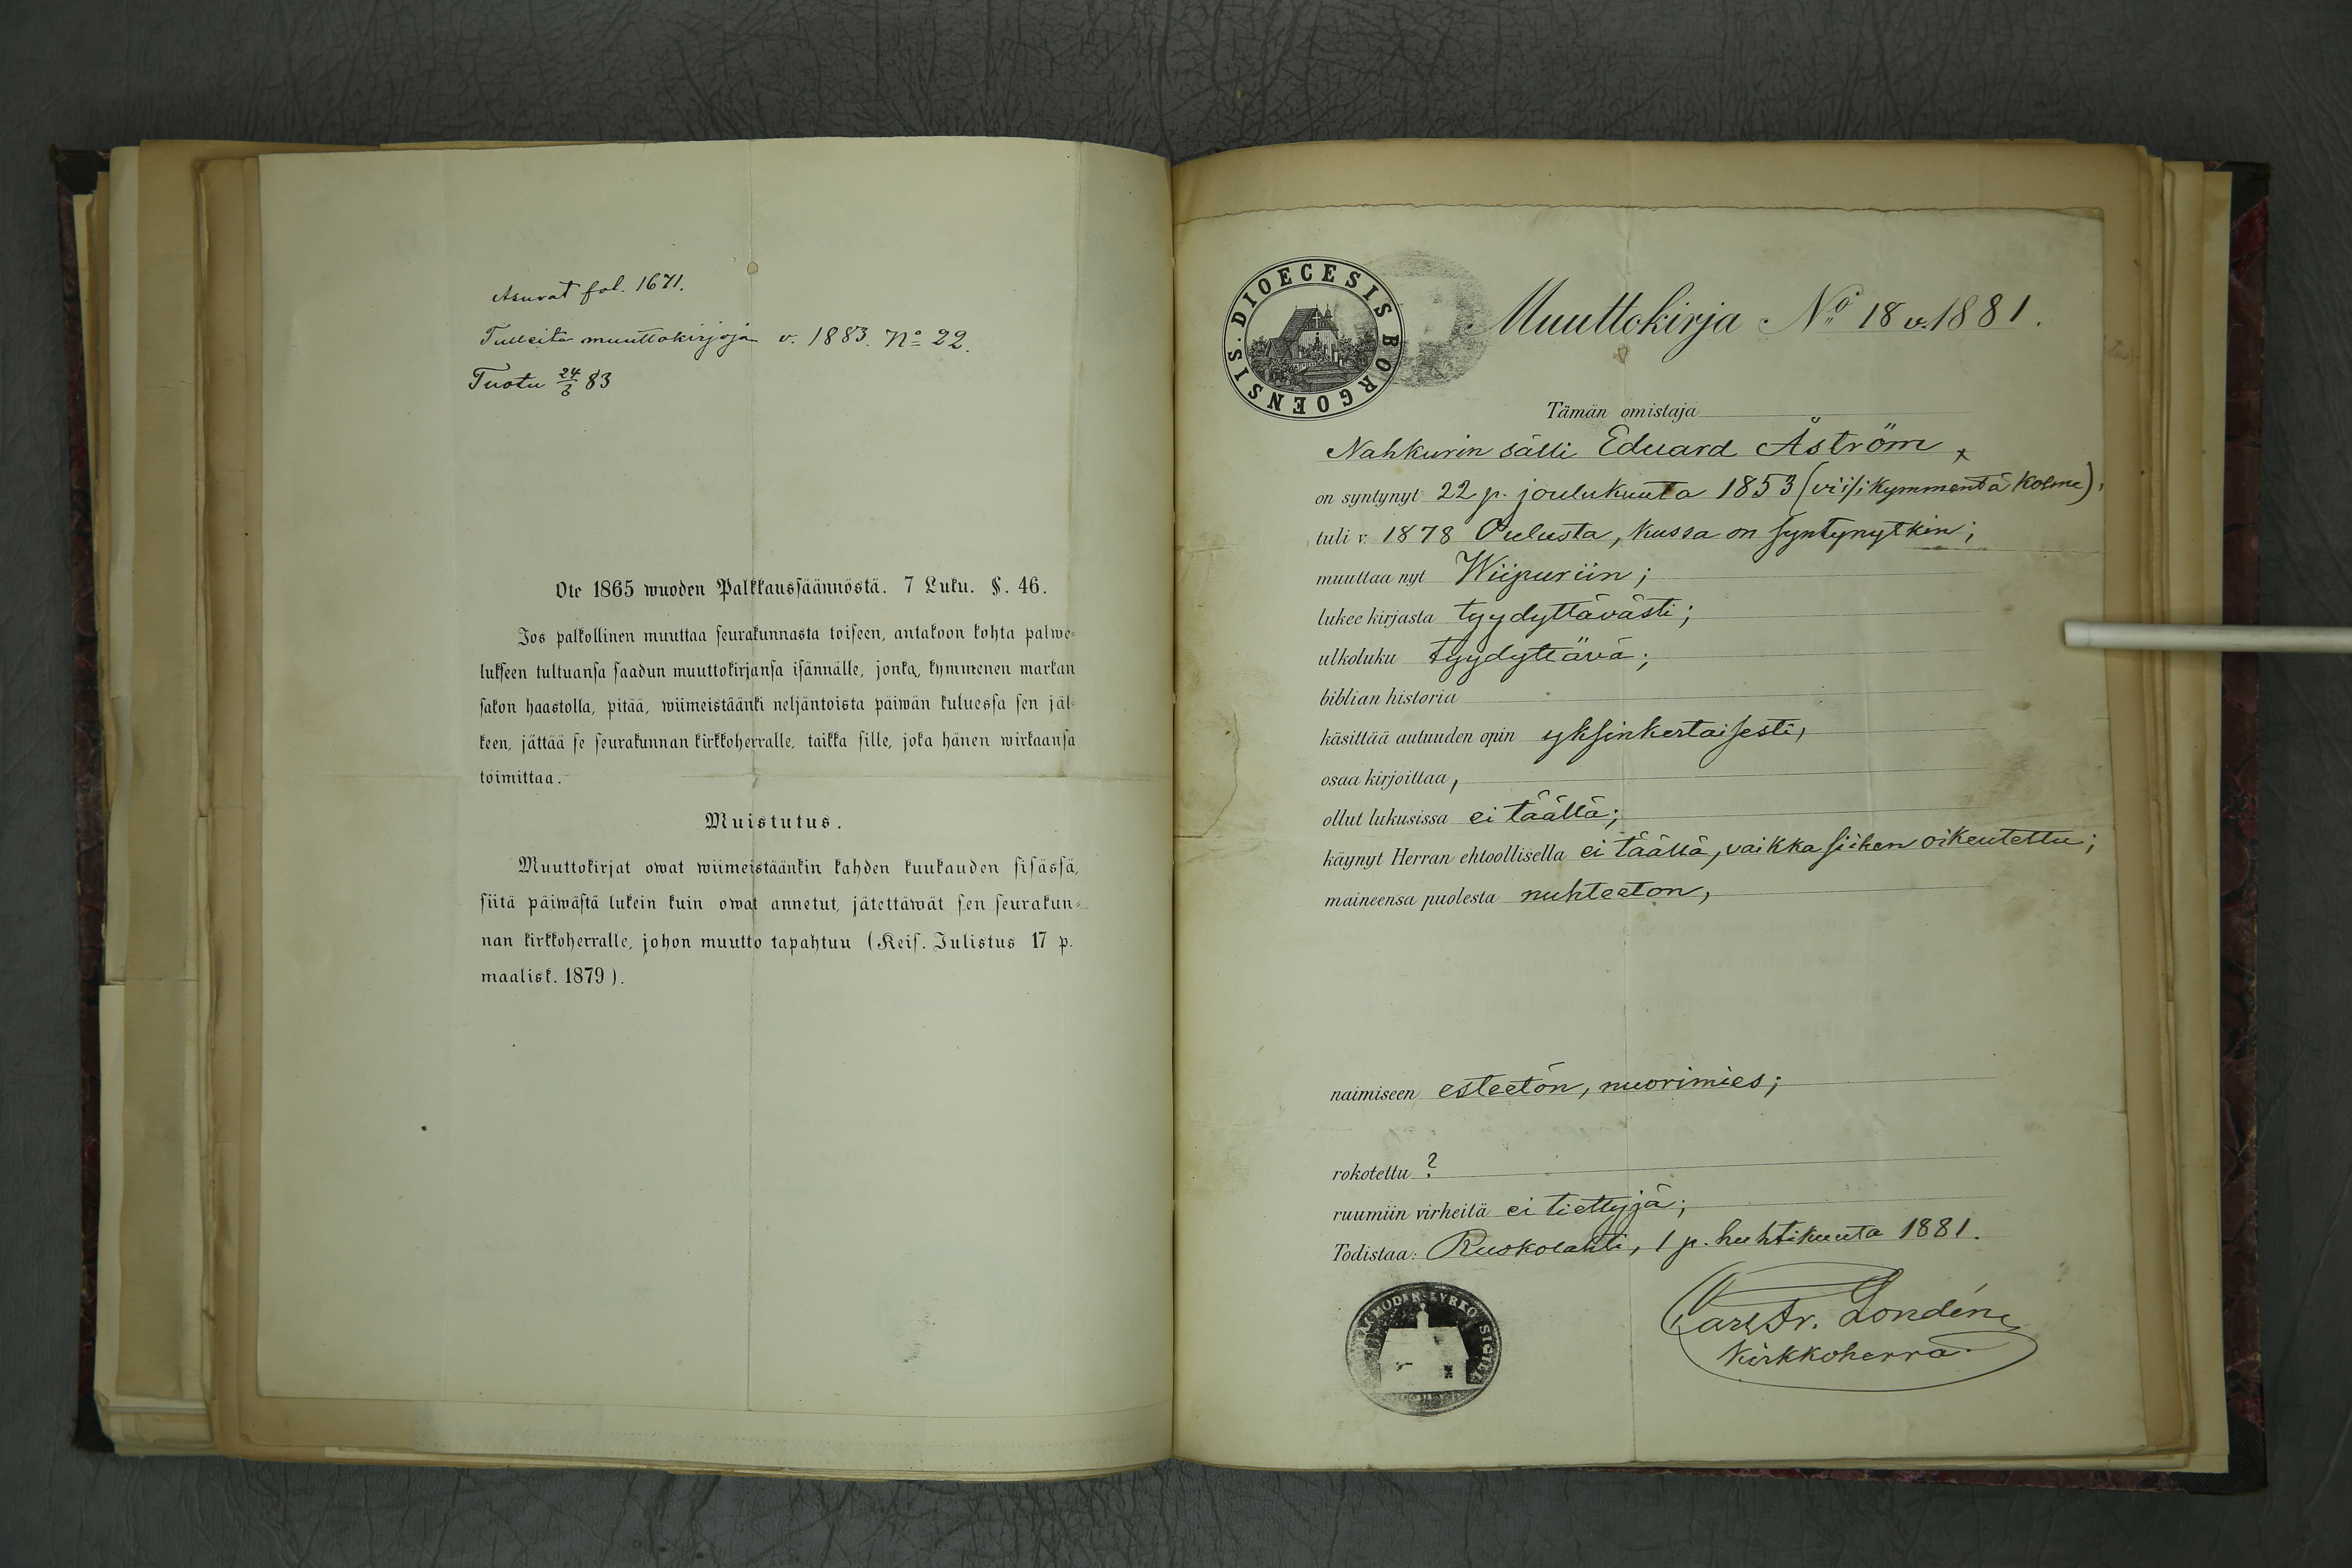 Asuvat fol. 1671.
Tulleita muuttokirjoja v. 1883. No 22.
Tuotu 24/3 83
Ote 1865 wuoden Palkkausſäännöstä. 7 Luku. §. 46.
Jos palkollinen muuttaa ſeurakunnasta toiſeen, antakoon kohta palwe-
lukſeen tultuanſa ſaadun muuttokirjanſa iſännälle, jonka, kymmenen markan
ſakon haastolla, pitää, wiimeistäänki neljäntoista päiwän kulueſſa ſen jäl-
keen, jättää ſe ſeurakunnan kirkkoherralle, taikka ſille, joka hänen wirkaanſa
toimittaa.
Muistutus.
Muuttokirjat owat wiimeistäänkin kahden kuukauden ſiſäsſä,
ſiitä päiwäſtä lukein kuin owat annetut, jätettäwät ſen ſeurakun-
nan kirkkoherralle, johon muutto tapahtuu (Keiſ. Julistus 17 p.
maalisk. 1879).
DIOECESIS BORGOENSIS.
Muuttokirja No 18 v. 1881.
Tämän omistaja
Nahkurin sälli Eduard Åström,
on syntynyt 22 p. joulukuuta 1853 (viiſikymmentä kolme),
tuli v. 1878 Oulusta, kussa on ſyntynytkin;
muuttaa nyt Wiipuriin;
lukee kirjasta tyydyttävästi;
ulkoluku tyydyttävä;
biblian historia
käsittää autuuden opin ykſinkertaiſesti,
osaa kirjoittaa,
ollut lukusissa ei täällä;
käynyt Herran ehtoollisella ei täällä, vaikka ſiihen oikeutettu;
maineensa puolesta nuhteeton,
naimiseen esteetön, nuorimies;
rokotettu ?
ruumiin virheitä ei tiettyjä;
Todistaa: Ruskolahti, 1 p. huhtikuuta 1881.
MODER KYRKO SIGILL
Carl Fr. Londén
Kirkkoherra.